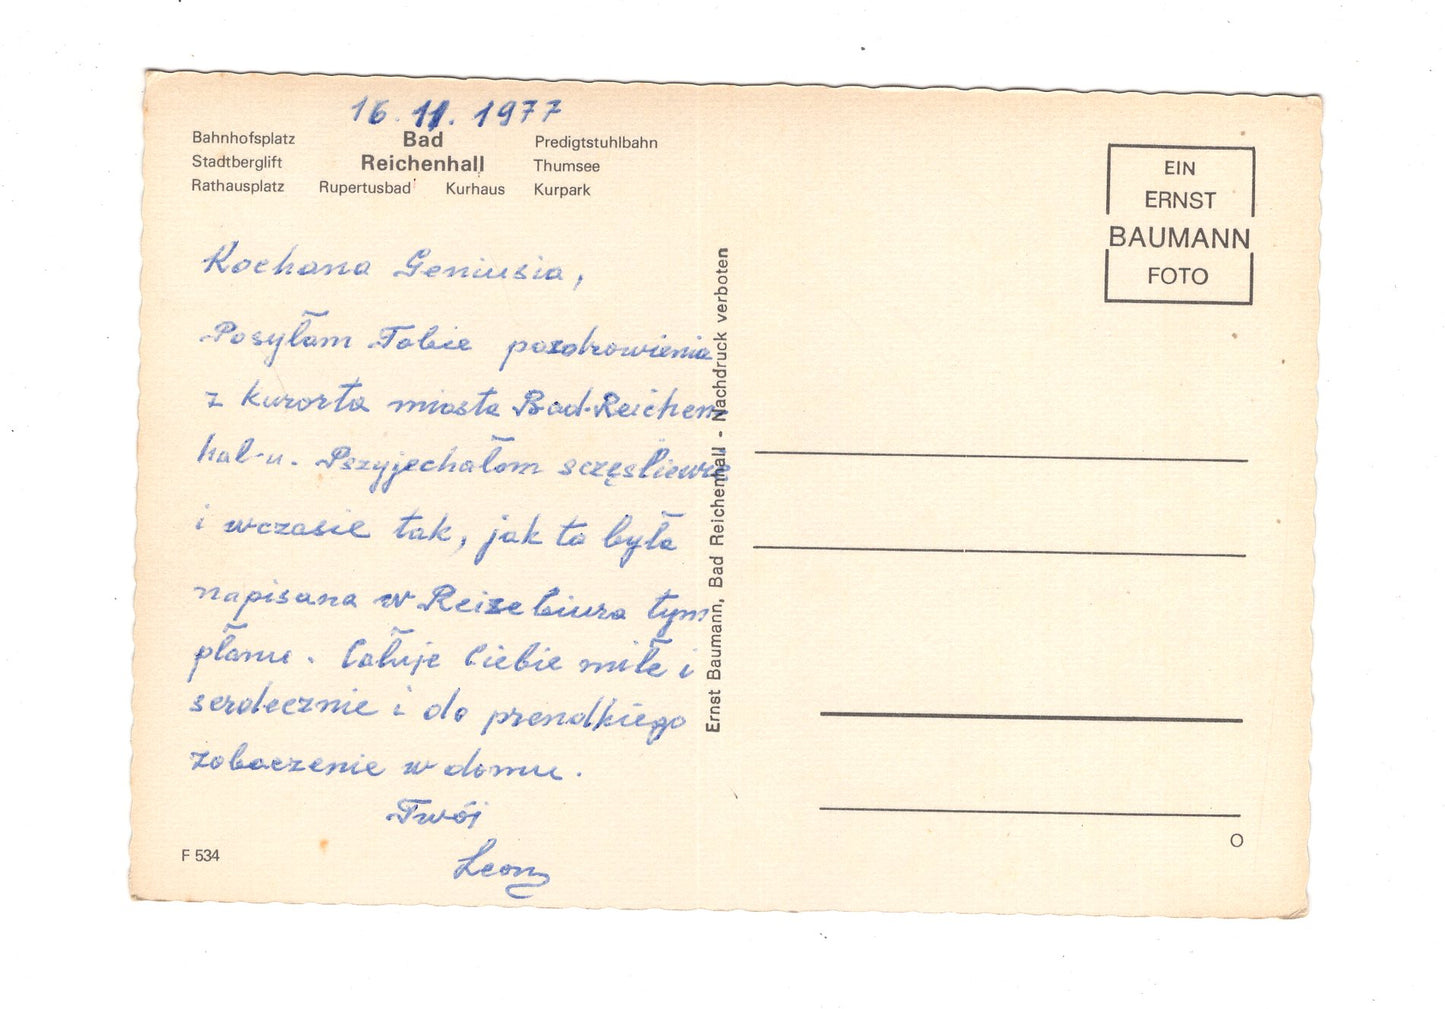 16.11.1977
Bahnhofsplatz Bad Predigtstuhlbahn
Stadtberglift Reichenhall Thumsee
Rathausplatz Rupertusbad Kurhaus Kurpark
Kochana Geniusia,
Posyłam Tobie pozdrowienia
z kurorta miasta Bad-Reichen-
hal-u. Pszyjechałom sczęśliewie
i wczasie tak, jak to była
napisana w Reizebiura tym
płanu. Całuje Ciebie miłe i
serdecznie i do prendkiego
zobaczenie w domu.
Twój
Leon
F 534
Ernst Baumann, Bad Reichenhall - Nachdruck verboten
EIN
ERNST
BAUMANN
FOTO
O